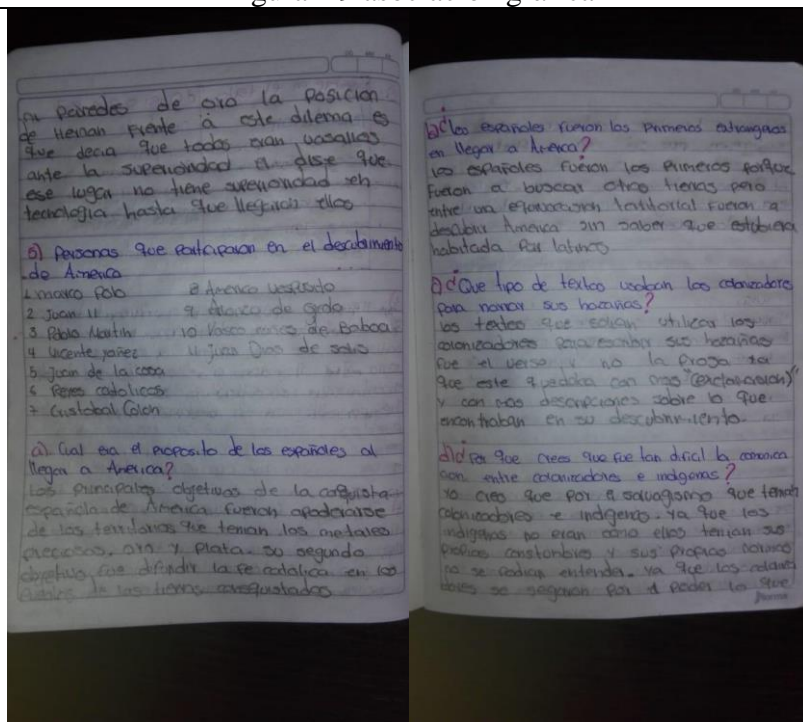 paredes de oro la posición
de Hernan frente a este dilema es
que decia que todos eran vasallos
ante la superioridad el dise que
ese lugar no tiene superioridad
tecnologia hasta que llegaron ellos
5) Personas que participaron en el descubrimiento
de America
1 marco Polo
2 Juan II
3 Pablo Martin
4 vicente yañez
5 Juan de la cosa
6 Reyes catolicos
7 Cristobal Colon
8 Americo vespusio
9 de
10 Vasco de Balboa
11 Juan Dias de solis
a) Cual era el proposito de los españoles al
llegar a America?
Los principales objetivos de la conquista
española de America fueron apoderarse
de los territorios que tenian los metales
preciosos, oro y plata. su segundo
objetivo fue difundir la fe catolica en los
pueblos de las tierras conquistadas
b) ¿los españoles fueron los primeros extrangeros
en llegar a America?
los españoles fueron los primeros porque
fueron a buscar otras tierras pero
entre una territorial fueron a
descubrir America sin saber que estubiera
habitada por latinos
c) ¿Que tipo de textos usaban los colonizadores
para narrar sus hazañas?
los textos que solian utilizar los
colonizadores para escribir sus hazañas
fue el verso y no la prosa ya
que este quedaba con mas "(exclamacion)"
y con mas descripciones sobre lo que
encontraban en su descubrimiento.
d) ¿Por que crees que fue tan dificil la comunica
cion entre colonizadores e indigenas?
Yo creo que por el salvagismo que tenian
colonizadores e indigenas. ya que los
indigenas no eran como ellos tenian sus
propias constonbres y sus propias
no se podian entender. ya que los
se segaron por el poder lo que